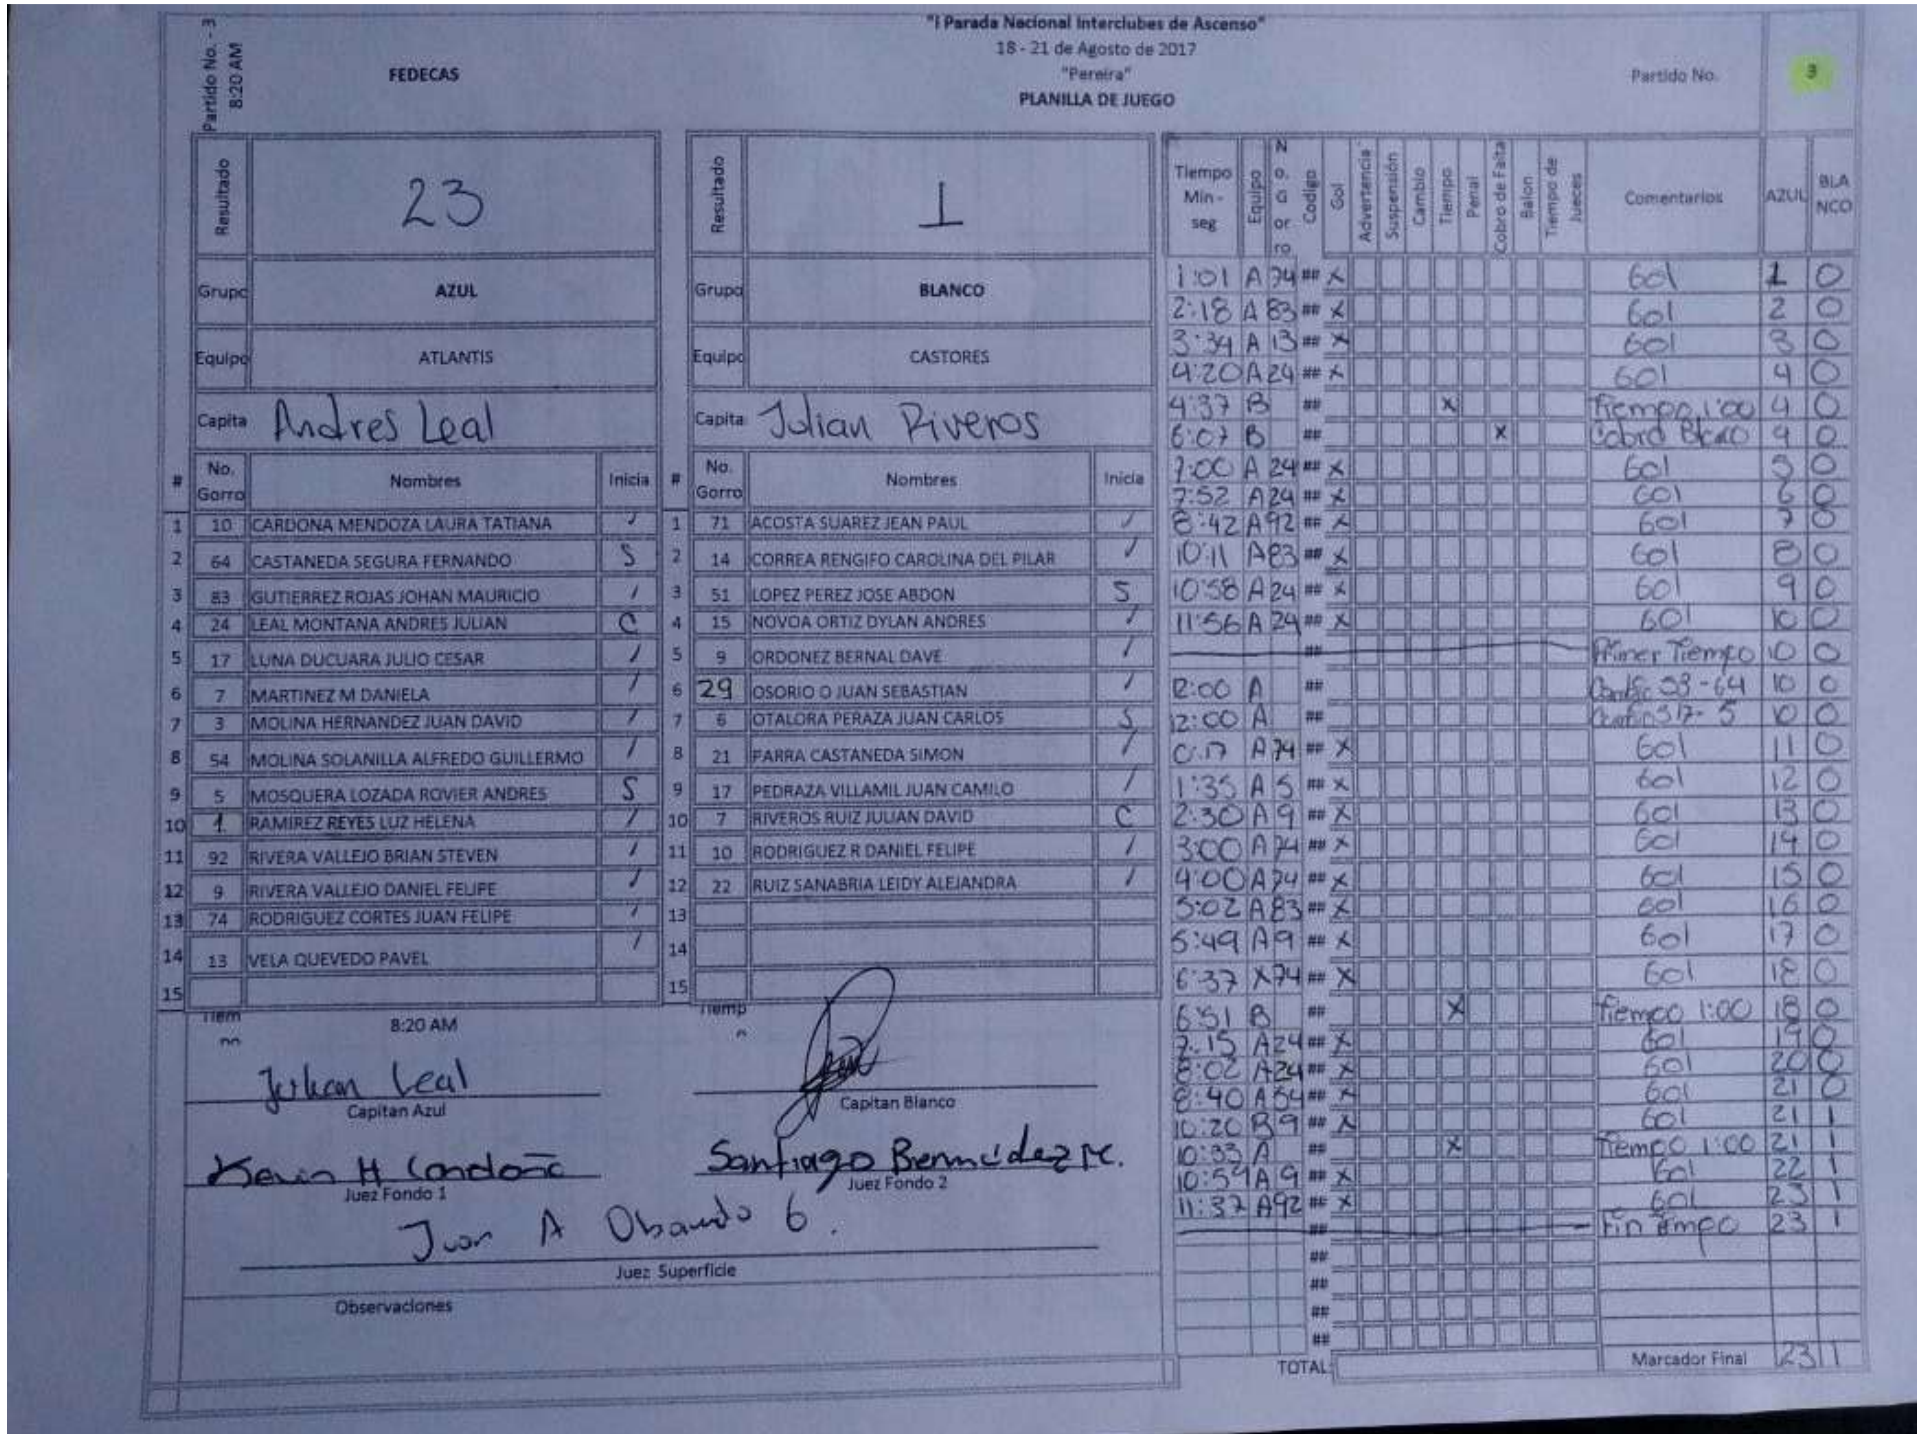 "I Parada Nacional Interclubes de Ascenso"
18 - 21 de Agosto de 2017
"Pereira"
PLANILLA DE JUEGO
Partido No. - 3
8:20 AM
FEDECAS
Partido No. 3
Resultado 23
Grupo AZUL
Equipo ATLANTIS
Capita Andres Leal
# No. Gorro Nombres Inicia
1 10 CARDONA MENDOZA LAURA TATIANA /
2 64 CASTANEDA SEGURA FERNANDO S
3 83 GUTIERREZ ROJAS JOHAN MAURICIO /
4 24 LEAL MONTANA ANDRES JULIAN C
5 17 LUNA DUCUARA JULIO CESAR /
6 7 MARTINEZ M DANIELA /
7 3 MOLINA HERNANDEZ JUAN DAVID /
8 54 MOLINA SOLANILLA ALFREDO GUILLERMO /
9 5 MOSQUERA LOZADA ROVIER ANDRES S
10 1 RAMIREZ REYES LUZ HELENA /
11 92 RIVERA VALLEJO BRIAN STEVEN /
12 9 RIVERA VALLEJO DANIEL FELIPE /
13 74 RODRIGUEZ CORTES JUAN FELIPE /
14 13 VELA QUEVEDO PAVEL /
15
Resultado 1
Grupo BLANCO
Equipo CASTORES
Capita Julian Riveros
# No. Gorro Nombres Inicia
1 71 ACOSTA SUAREZ JEAN PAUL /
2 14 CORREA RENGIFO CAROLINA DEL PILAR /
3 51 LOPEZ PEREZ JOSE ABDON S
4 15 NOVOA ORTIZ DYLAN ANDRES /
5 9 ORDONEZ BERNAL DAVE /
6 29 OSORIO O JUAN SEBASTIAN /
7 6 OTALORA PERAZA JUAN CARLOS S
8 21 PARRA CASTANEDA SIMON /
9 17 PEDRAZA VILLAMIL JUAN CAMILO /
10 7 RIVEROS RUIZ JULIAN DAVID C
11 10 RODRIGUEZ R DANIEL FELIPE /
12 22 RUIZ SANABRIA LEIDY ALEJANDRA /
13
14
15
8:20 AM
Julian Leal
Capitan Azul
Capitan Blanco
Kevin H
Juez Fondo 1
Santiago Bermúdez M.
Juez Fondo 2
Juan A Obando G.
Juez Superficie
Observaciones
Tiempo Min - seg Equipo No. Gorro Codigo Gol Advertencia Suspensión Cambio Tiempo Penal Cobro de Falta Balon Tiempo de Jueces Comentarios AZUL BLANCO
1:01 A 74 ## X Gol 1 0
2:18 A 83 ## X Gol 2 0
3:34 A 13 ## X Gol 3 0
4:20 A 24 ## X Gol 4 0
4:37 B ## X Tiempo 1:00 4 0
6:07 B ## X Cobro 4 0
7:00 A 24 ## X Gol 5 0
7:52 A 24 ## X Gol 6 0
8:42 A 92 ## X Gol 7 0
10:11 A 83 ## X Gol 8 0
10:58 A 24 ## X Gol 9 0
11:56 A 24 ## X Gol 10 0
## Primer Tiempo 10 0
12:00 A ## 10 0
12:00 A ## 10 0
0:17 A 74 ## X Gol 11 0
1:35 A 5 ## X Gol 12 0
2:30 A 9 ## X Gol 13 0
3:00 A 74 ## X Gol 14 0
4:00 A 74 ## X Gol 15 0
5:02 A 83 ## X Gol 16 0
5:49 A 9 ## X Gol 17 0
6:37 74 ## X Gol 18 0
6:51 B ## X Tiempo 1:00 18 0
7:15 A 24 ## X Gol 19 0
8:02 A 24 ## X Gol 20 0
8:40 A ## X Gol 21 0
10:20 B 9 ## X Gol 21 1
10:33 A ## X Tiempo 1:00 21 1
10:59 A 9 ## X Gol 22 1
11:37 A 92 ## X Gol 23 1
## Fin 23 1
##
##
##
##
TOTAL Marcador Final 23 1